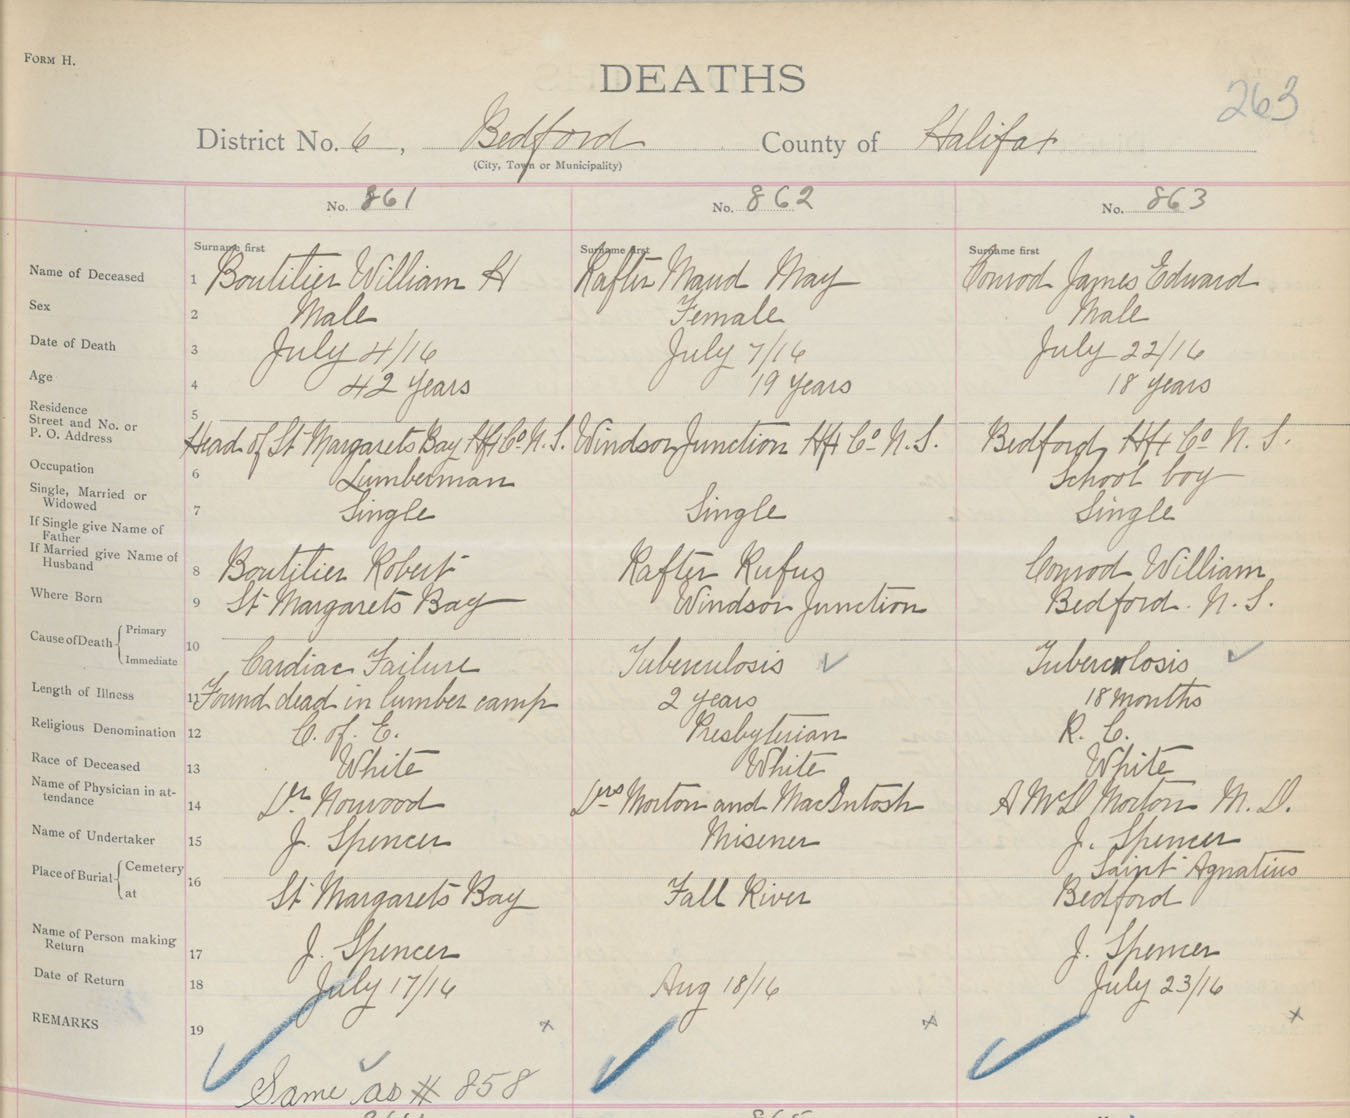 FORM H.
DEATHS
263
District No. 6, Bedford County of Halifax
(City, Town or Municipality)
No. 861 No. 862 No. 863
Surname first Surname first Surname first
Name of Deceased 1 Boutilier William H Rafter Maud May Conrod James Edward
Sex 2 Male Female Male
Date of Death 3 July 4/16 July 7/16 July 22/16
Age 4 42 years 19 years 18 years
Residence Street and No. or P. O. Address 5 Head of St Margarets Bay Hfx Co N. S. Windsor Junction Hfx Co N. S. Bedford Hfx Co N. S.
Occupation 6 Lumberman School boy
Single, Married or Widowed 7 Single Single Single
If Single give Name of Father
If Married give Name of Husband 8 Boutilier Robert Rafter Rufus Conrod William
Where Born 9 St Margarets Bay Windsor Junction Bedford. N. S.
Cause of Death { Primary Immediate 10 Cardiac Failure Tuberculosis ✓ Tuberculosis ✓
Length of Illness 11 Found dead in lumber camp 2 years 18 months
Religious Denomination 12 C. of. E. Presbyterian R. C.
Race of Deceased 13 White White White
Name of Physician in attendance 14 Dr Norwood Drs Morton and MacIntosh A McD Morton M. D.
Name of Undertaker 15 J. Spencer Misener J. Spencer
Place of Burial { Cemetery at 16 St Margarets Bay Fall River Saint Agnatius Bedford
Name of Person making Return 17 J. Spencer J. Spencer
Date of Return 18 July 17/16 Aug 18/16 July 23/16
REMARKS 19 x x x
Same as # 858